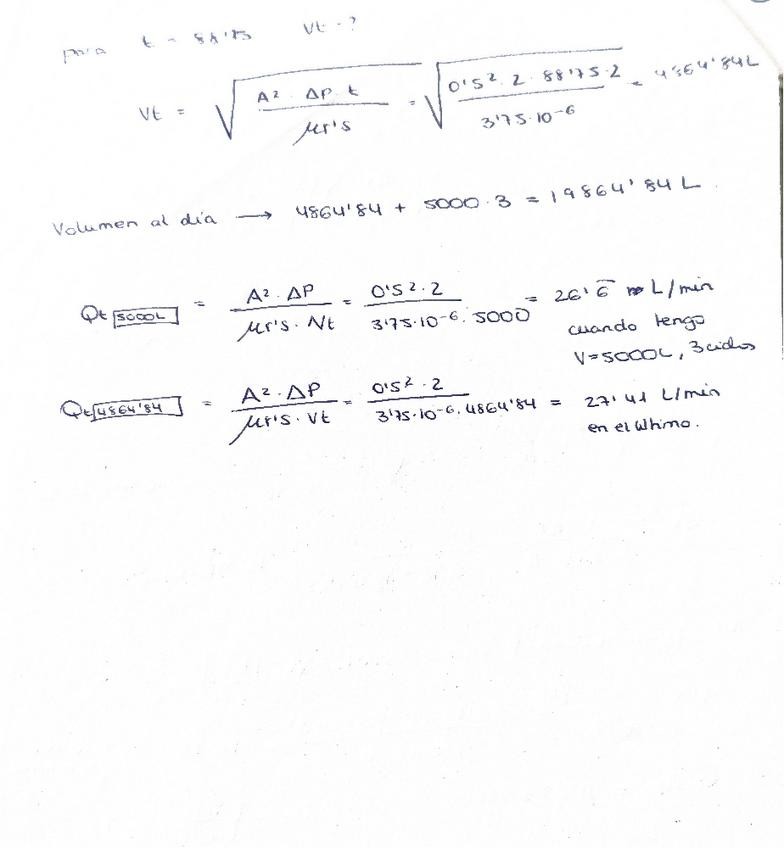 para t = 88'75 Vt = ?
Vt = √(A² · ΔP · t / μr's) = √(0'5² · 2 · 88'75 · 2 / 3'75·10-6) = 4864'84L
Volumen al día → 4864'84 + 5000 · 3 = 19864'84 L
Qt 5000L = A² · ΔP / μr's · Vt = 0'5² · 2 / 3'75·10-6 · 5000 = 26'6̅ L/min
cuando tengo
V=5000L, 3 ciclos
Qt 4864'84 = A² · ΔP / μr's · Vt = 0'5² · 2 / 3'75·10-6 · 4864'84 = 27'41 L/min
en el último.